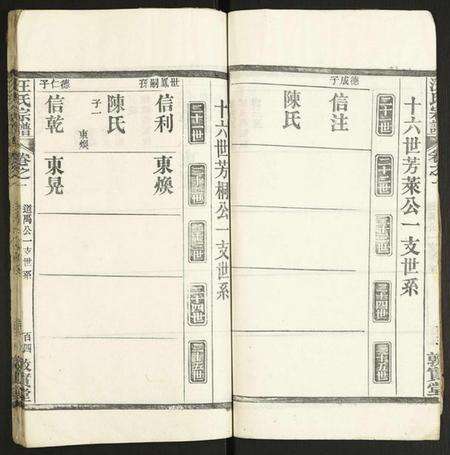 十六世芳萊公一支世系
二十一世
二十二世
二十三世
二十四世
二十五世
德成子
信注
陳氏
敦實堂
十六世芳桐公一支世系
二十一世
二十二世
二十三世
二十四世
二十五世
世鳳嗣子
信利 東煥
陳氏
子一
東煥
德仁子
信乾 東晃
汪氏宗譜
卷之一
道禹公一支世系
百四
敦實堂